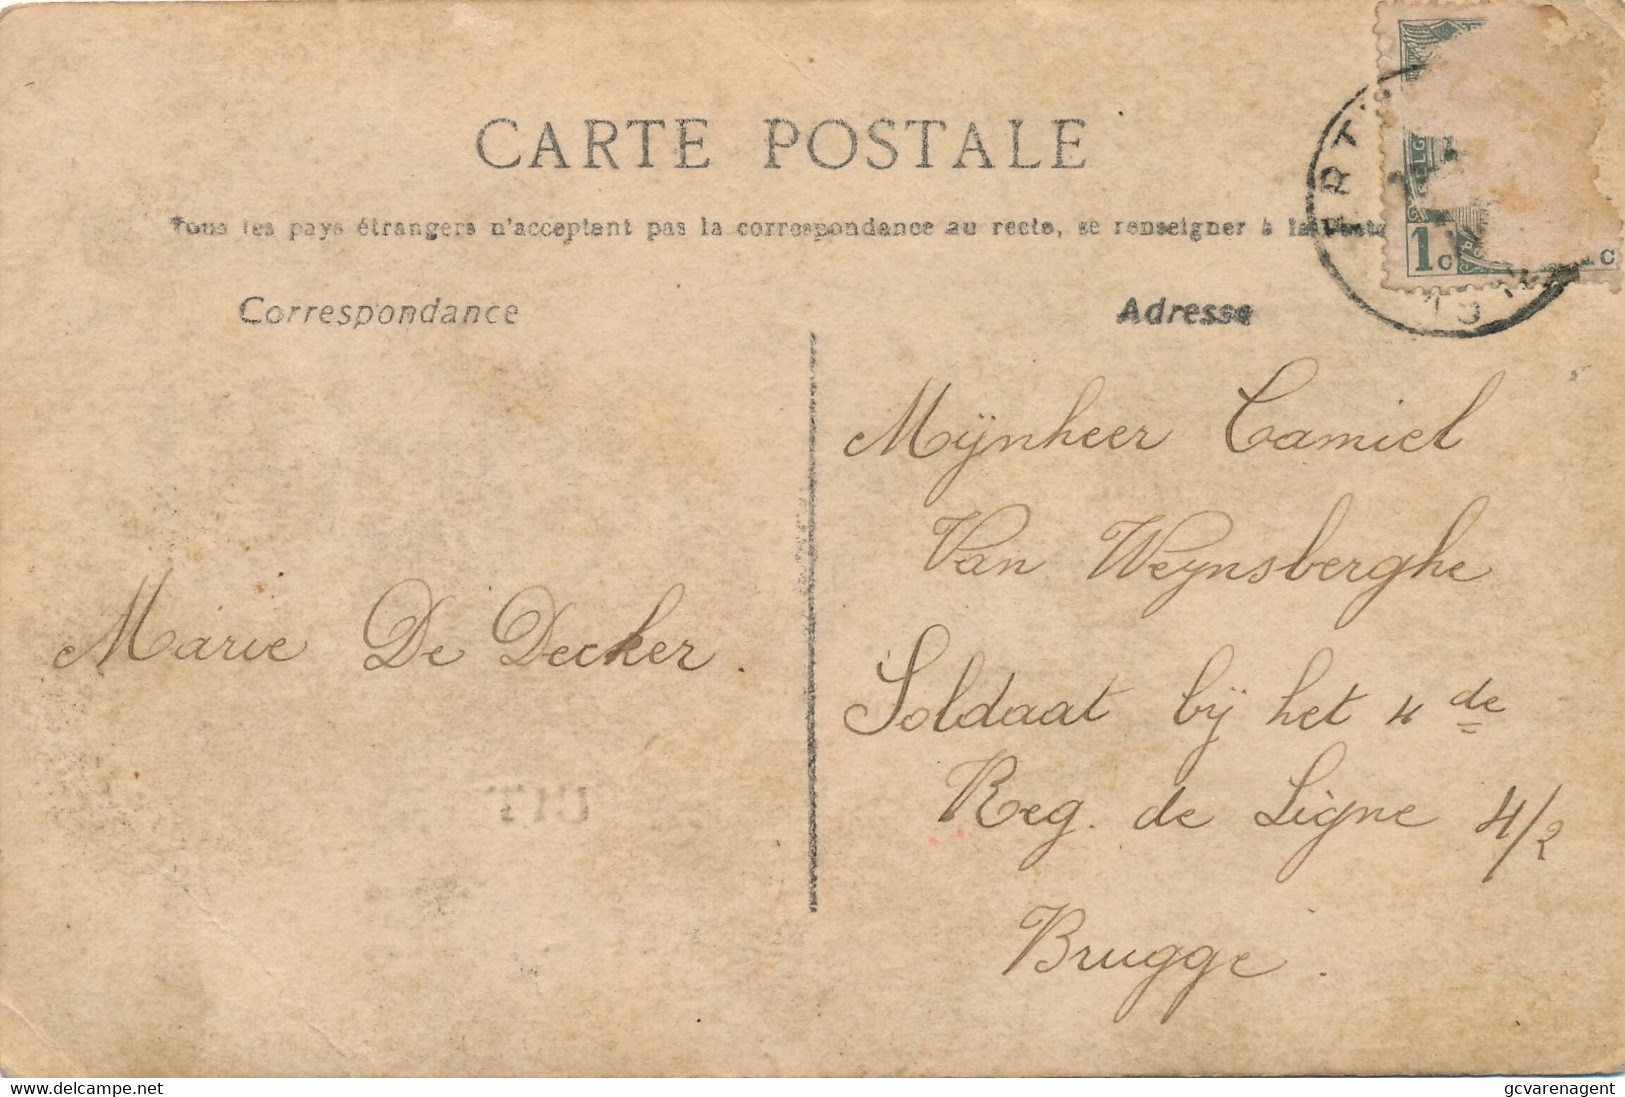 CARTE POSTALE
Tous les pays étrangers n'acceptent pas la correspondance au recto, se renseigner à la Poste
Correspondance
Adresse
1 c
c
Mÿnheer Camiel
Van Weynsberghe
Marie De Decker.
Soldaat bÿ het 4de
Reg. de Ligne 4/2
Brugge.
delcampe.net
gcvarenagent